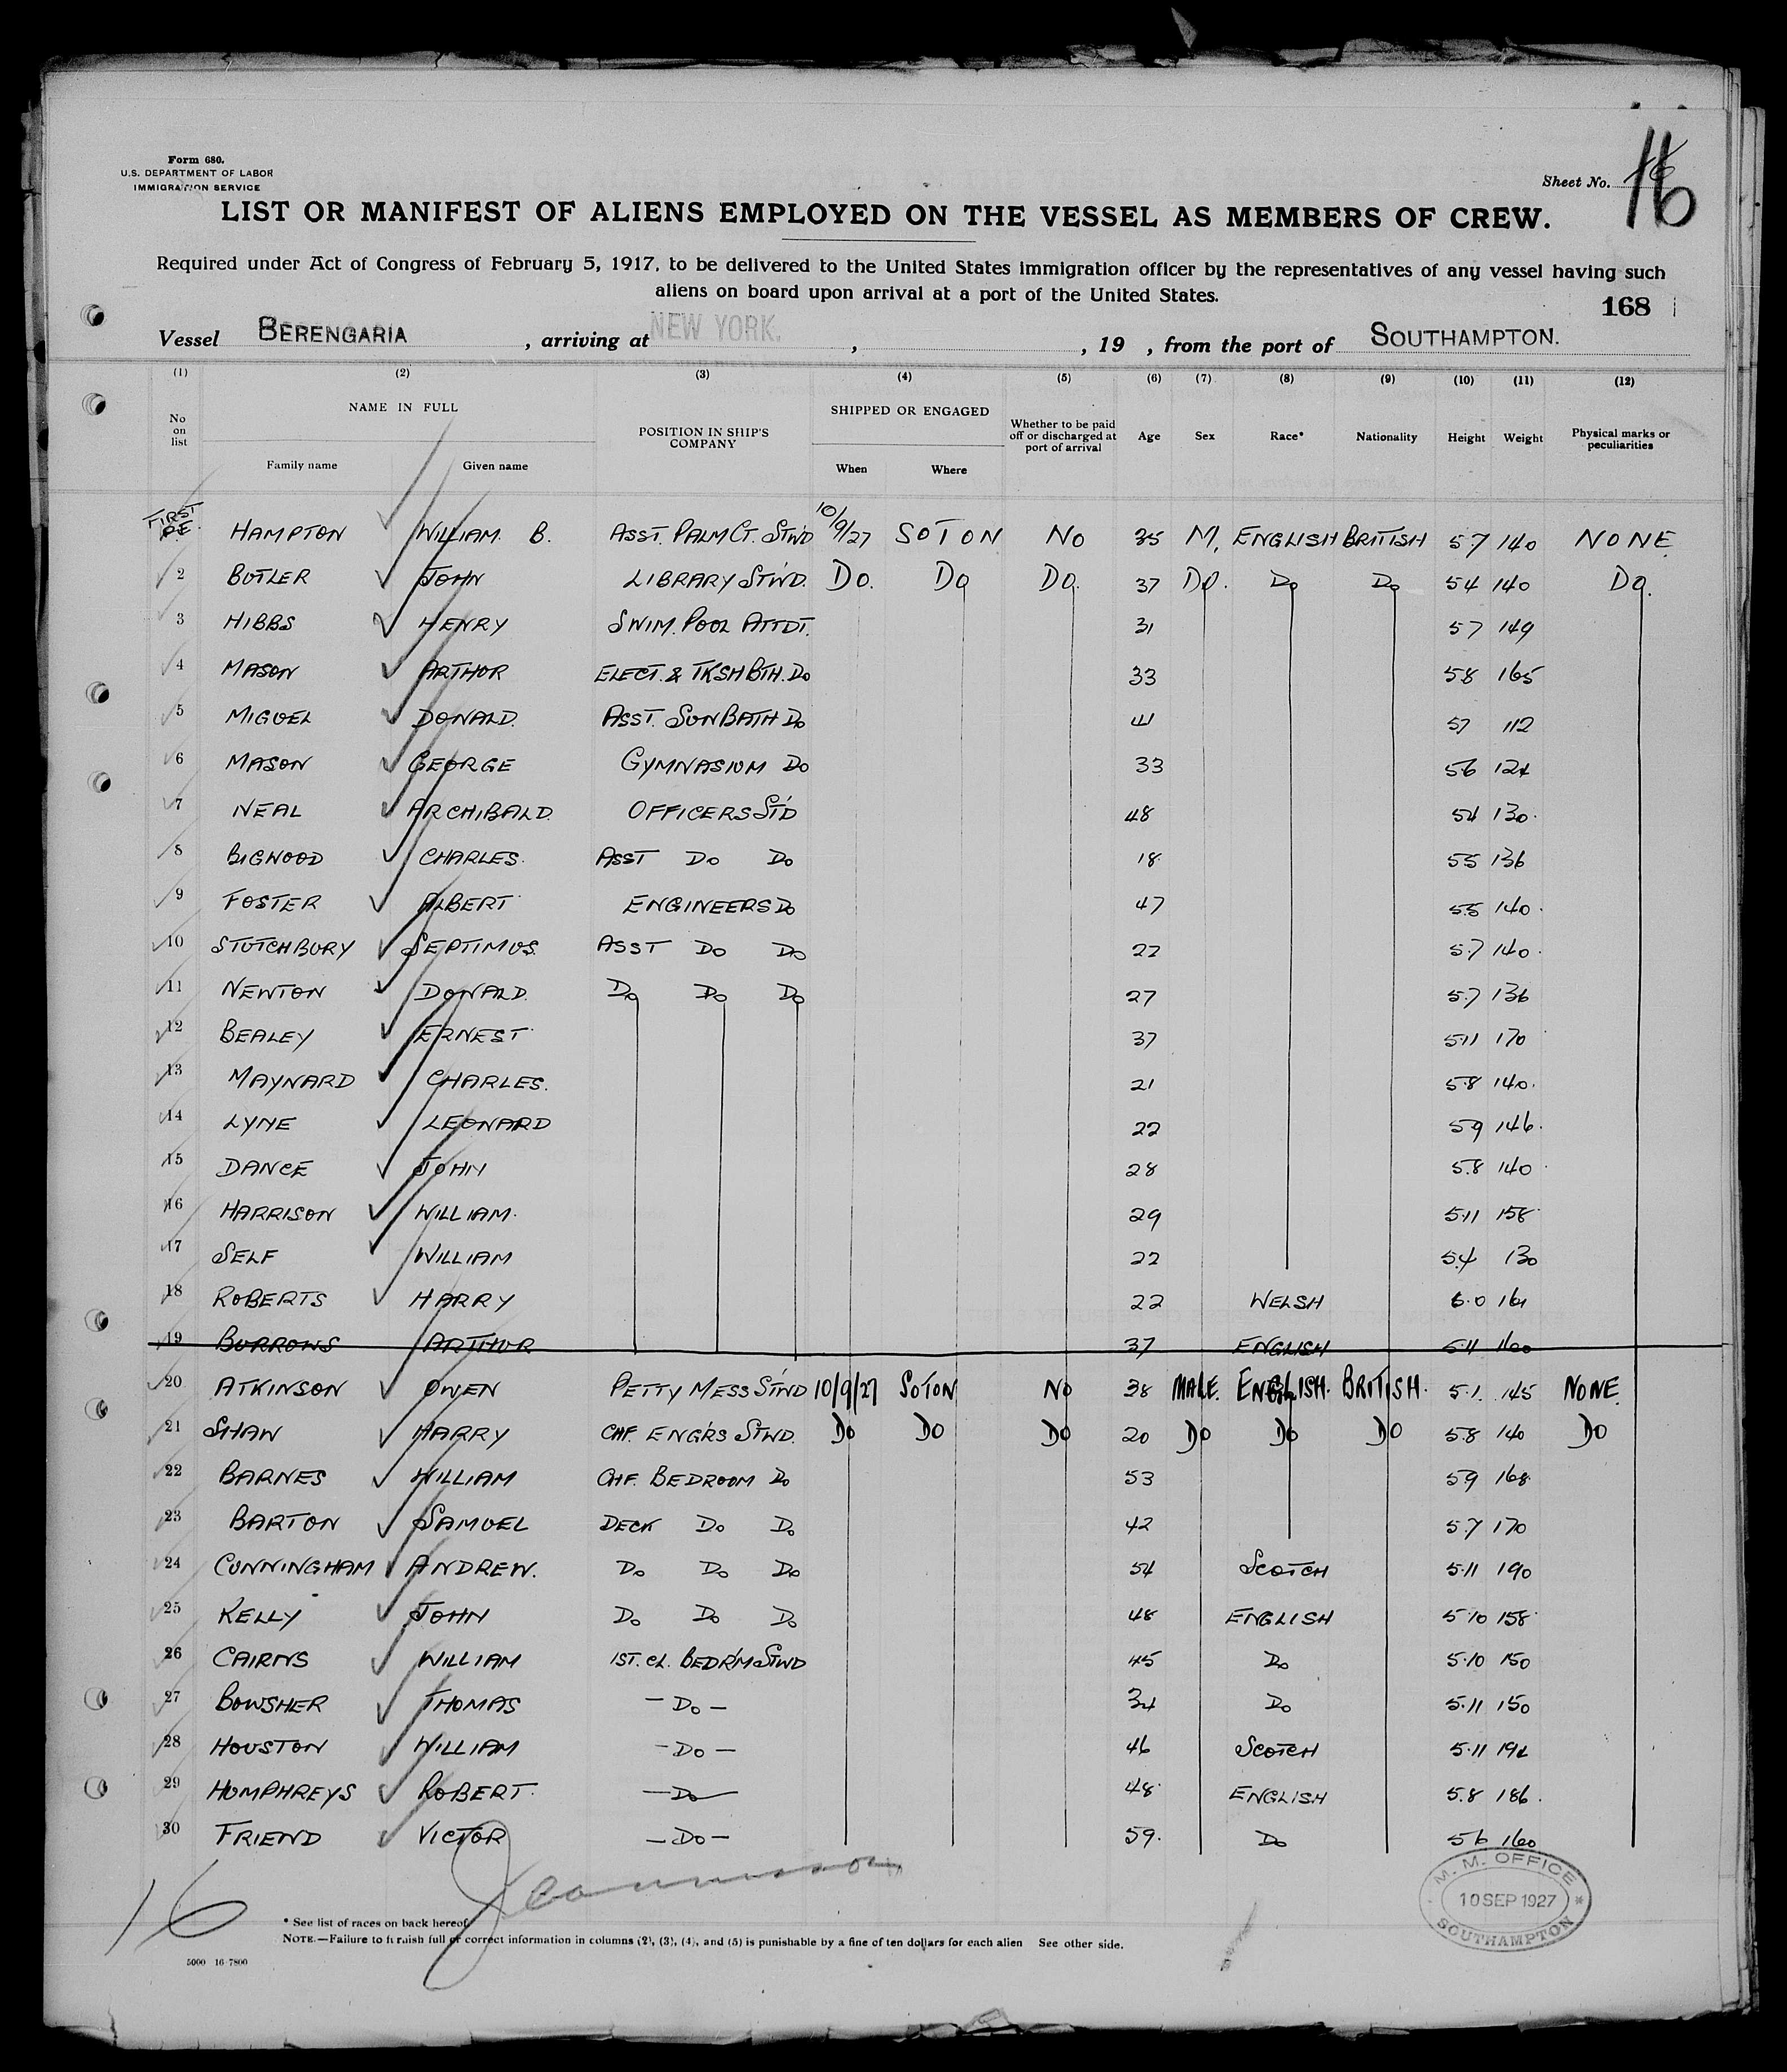 Form 680.
U.S. DEPARTMENT OF LABOR
IMMIGRATION SERVICE
Sheet No. 16
LIST OR MANIFEST OF ALIENS EMPLOYED ON THE VESSEL AS MEMBERS OF CREW.
Required under Act of Congress of February 5, 1917, to be delivered to the United States immigration officer by the representatives of any vessel having such
aliens on board upon arrival at a port of the United States.
168
Vessel BERENGARIA , arriving at NEW YORK. , , 19 , from the port of SOUTHAMPTON.
(1) (2) (3) (4) (5) (6) (7) (8) (9) (10) (11) (12)
No on list NAME IN FULL Family name Given name POSITION IN SHIP'S COMPANY SHIPPED OR ENGAGED When Where Whether to be paid off or discharged at port of arrival Age Sex Race* Nationality Height Weight Physical marks or peculiarities
FIRST HAMPTON WILLIAM B. ASST. PALM CT. STWD 10/9/27 SOTON NO 35 M. ENGLISH BRITISH 5 7 140 NONE
2 BUTLER JOHN LIBRARY STWD. DO. DO DO. 37 DO. DO DO 5 4 140 DO.
3 HIBBS HENRY SWIM. POOL ATTDT. 31 5 7 149
4 MASON ARTHUR ELECT. & TKSH BTH. DO 33 5 8 165
5 MIGUEL DONALD. ASST. SUN BATH DO 41 5 7 112
6 MASON GEORGE GYMNASIUM DO 33 5 6 124
7 NEAL ARCHIBALD. OFFICERS STD 48 5 4 130.
8 BIGWOOD CHARLES. ASST DO DO 18 5 5 136
9 FOSTER ALBERT ENGINEERS DO 47 5.5 140.
10 STUTCHBURY SEPTIMUS. ASST DO DO 22 5.7 140.
11 NEWTON DONALD. DO DO DO 27 5.7 136
12 BEALEY ERNEST 37 5.11 170
13 MAYNARD CHARLES. 21 5.8 140.
14 LYNE LEONARD 22 5 9 146.
15 DANCE JOHN 28 5.8 140
16 HARRISON WILLIAM. 29 5.11 158
17 SELF WILLIAM 22 5.4 130
18 ROBERTS HARRY 22 WELSH 6.0 161
19 BURROWS ARTHUR 37 ENGLISH 5.11 160
20 ATKINSON OWEN PETTY MESS STWD 10/9/27 SOTON NO 38 MALE. ENGLISH. BRITISH. 5.1. 145 NONE.
21 SHAW HARRY CHF. ENGRS STWD. DO DO DO 20 DO DO DO 5.8 140 DO
22 BARNES WILLIAM CHF. BEDROOM DO 53 5 9 168
23 BARTON SAMUEL DECK DO DO 42 5.7 170
24 CUNNINGHAM ANDREW. DO DO DO 54 SCOTCH 5.11 190
25 KELLY JOHN DO DO DO 48 ENGLISH 5.10 158
26 CAIRNS WILLIAM 1ST. CL. BEDR'M STWD 45 DO 5.10 150
27 BOWSHER THOMAS - DO - 34 DO 5.11 150
28 HOUSTON WILLIAM - DO - 46 SCOTCH 5.11 192
29 HUMPHREYS ROBERT. - DO - 48 ENGLISH 5.8 186.
30 FRIEND VICTOR - DO - 59. DO 5 6 160
M. M. OFFICE
10 SEP 1927
SOUTHAMPTON
16
* See list of races on back hereof.
NOTE.—Failure to furnish full or correct information in columns (2), (3), (4), and (5) is punishable by a fine of ten dollars for each alien See other side.
5000 16-7800